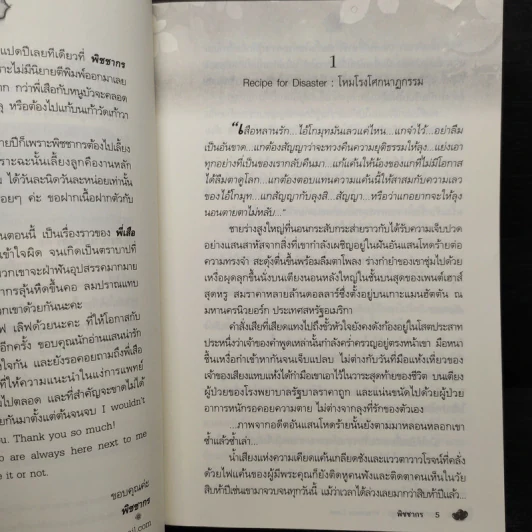 แปดปีเลยทีเดียวที่ พิชชากร
ราะไม่มีนิยายตีพิมพ์ออกมาเลย
กว่าพี่เสือกับหนูบัวจะคลอด
ลุ หรือต้องไปแก้บนเก้าวัดเก้าวา
ายปีก็เพราะพิชชากรต้องไปเลี้ยง
ราะฉะนั้นเลี้ยงลูกคืองานหลัก
ได้วันละนิดวันละหน่อยเท่านั้น
อยๆ ค่ะ ขอฝากเนื้อฝากตัวกับ
นตอนนี้ เป็นเรื่องราวของ พี่เสือ
เข้าใจผิด จนเกิดเป็นตราบาปที่
วกเขาจะฝ่าฟันอุปสรรคมากมาย
ารลุ้นหืดขึ้นคอ ลมปราณแทบ
วกเขาด้วยกันนะคะ
ฟ เลิฟด้วยนะคะ ที่ให้โอกาสกับ
อีกครั้ง ขอบคุณนักอ่านแสนน่ารัก
งใจกัน และยังรอคอยถามถึงพี่เสือ
ที่ให้ความแนะนำในแง่การแพทย์
วยไปตลอด และที่สำคัญจะขาดไม่ได้
ยกันมาตั้งแต่ต้นจนจบ I wouldn't
u. Thank you so much!
o are always here next to me
e it or not.
ขอบคุณค่ะ
พิชชากร
mail.com
1
Recipe for Disaster : โหมโรงโศกนาฏกรรม
"เสือหลานรัก...ไอ้โกมุทมันเลวแค่ไหน...แกจำไว้...อย่าลืม
เป็นอันขาด...แกต้องสัญญาว่าจะทวงคืนความยุติธรรมให้ลุง...แย่งเอา
ทุกอย่างที่เป็นของเรากลับคืนมา...แก้แค้นให้น้องของแกที่ไม่มีโอกาส
ได้ลืมตาดูโลก...แกต้องตอบแทนความแค้นนี้ให้สาสมกับความเลว
ของไอ้โกมุท...แกสัญญากับลุงสิ...สัญญา...หรือว่าแกอยากจะให้ลุง
นอนตายตาไม่หลับ..."
ชายร่างสูงใหญ่ที่นอนกระสับกระส่ายราวกับได้รับความเจ็บปวด
อย่างแสนสาหัสจากสิ่งที่เขากำลังเผชิญอยู่ในฝันอันแสนโหดร้ายต่อ
ความทรงจำ สะดุ้งตื่นขึ้นพร้อมลืมตาโพลง ร่างกำยำของเขาชุ่มไปด้วย
เหงื่อผุดลุกขึ้นนั่งบนเตียงนอนหลังใหญ่ในชั้นบนสุดของเพนต์เฮาส์
สุดหรู สมราคาหลายล้านดอลลาร์ซึ่งตั้งอยู่บนเกาะแมนฮัตตัน ณ
มหานครนิวยอร์ก ประเทศสหรัฐอเมริกา
คำสั่งเสียที่เสียดแทงไปถึงขั้วหัวใจยังคงดังก้องอยู่ในโสตประสาท
ประหนึ่งว่าเจ้าของคำพูดเหล่านั้นกำลังคร่ำครวญอยู่ตรงหน้าเขา มือหนา
ชื้นเหงื่อกำเข้าหากันจนเจ็บแปลบ ไม่ต่างกับวันที่มือแห้งเหี่ยวของ
เจ้าของเสียงแหบแห้งได้กำมือเขาเอาไว้ในวาระสุดท้ายของชีวิต บนเตียง
ผู้ป่วยของโรงพยาบาลรัฐบาลราคาถูก และแน่นขนัดไปด้วยผู้ป่วย
อาการหนักรอคอยความตาย ไม่ต่างจากลุงที่รักของตัวเอง
...ภาพจากอดีตอันแสนโหดร้ายนั้นยังตามมาหลอนหลอกเขา
ซ้ำแล้วซ้ำเล่า...
น้ำเสียงแห่งความเคียดแค้นเกลียดชังและแววตาวาวโรจน์ที่คลั่ง
ด้วยไฟแค้นของผู้มีพระคุณก็ยังติดหูคนฟังและติดตาคนเห็นในวัย
สิบห้าปีเช่นเขามาจวบจนทุกวันนี้ แม้ว่าเวลาได้ล่วงเลยมากว่าสิบห้าปีแล้ว...
พิชชากร 5